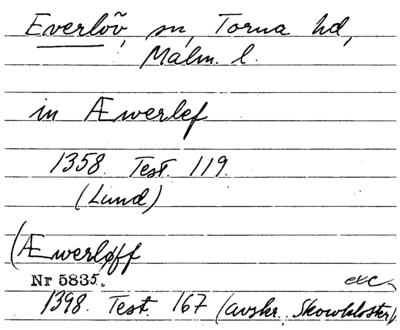 Everlöv, sn, Torna hd,
Malm. l.
in Æwerlef
1358. Test. 119.
(Lund)
(Æwerløff
Nr 5835. exc.
1398. Test. 167 (avskr. Skowkloster)